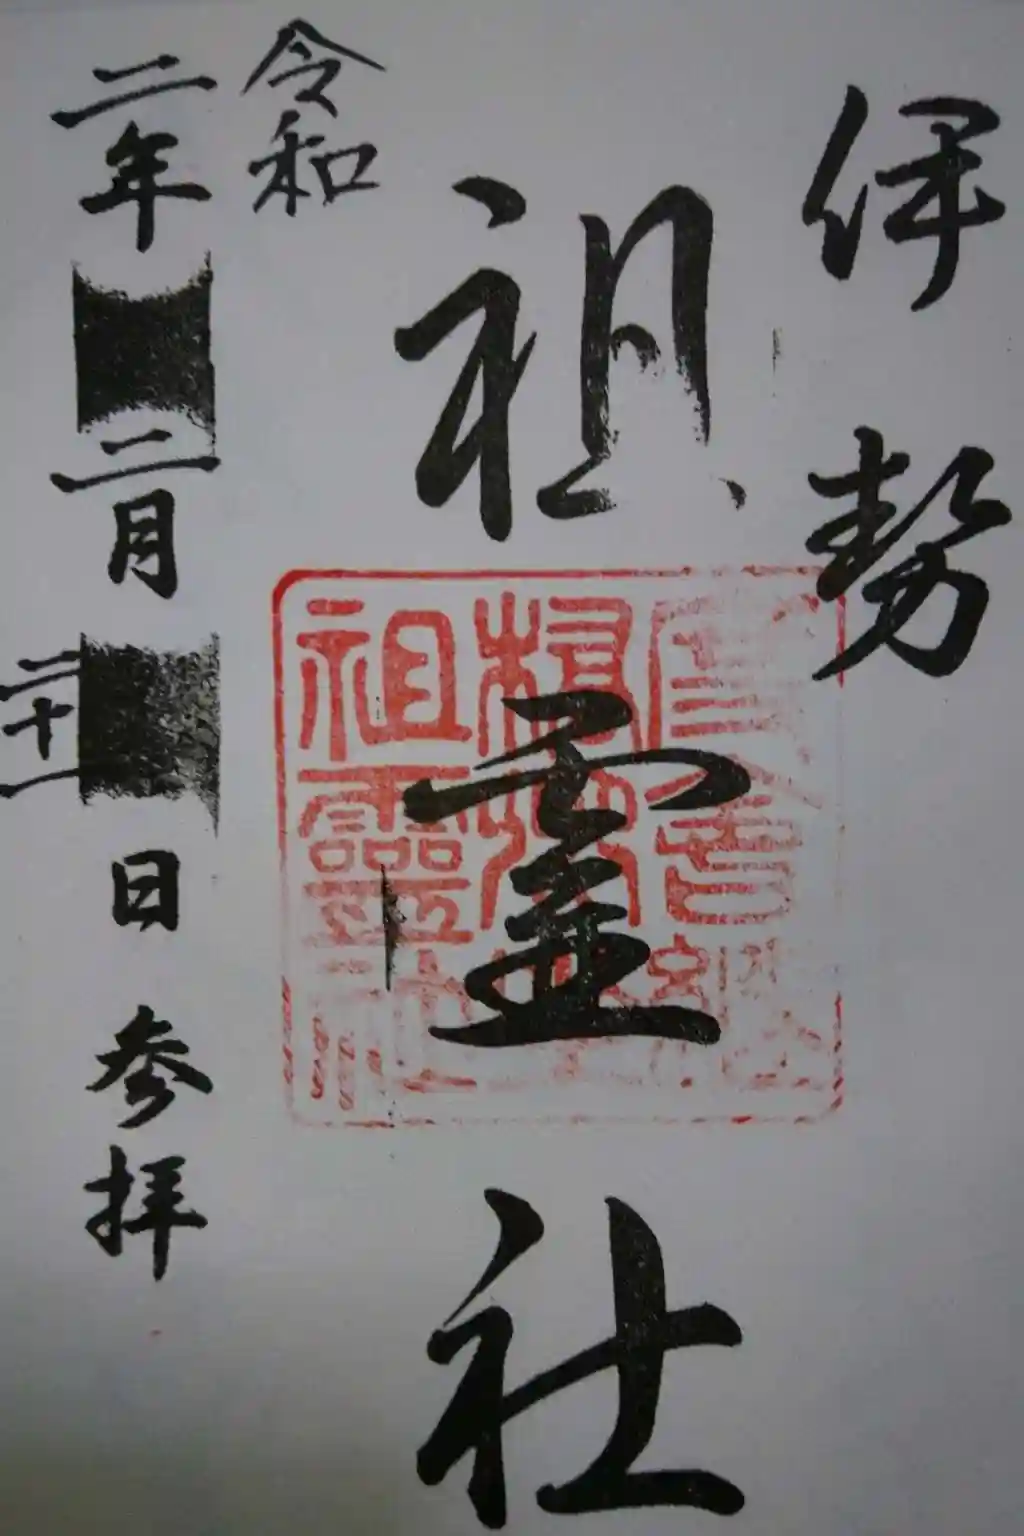 伊勢
祖霊社
令和
二年
二月
二十一
日
参拝
祖靈社